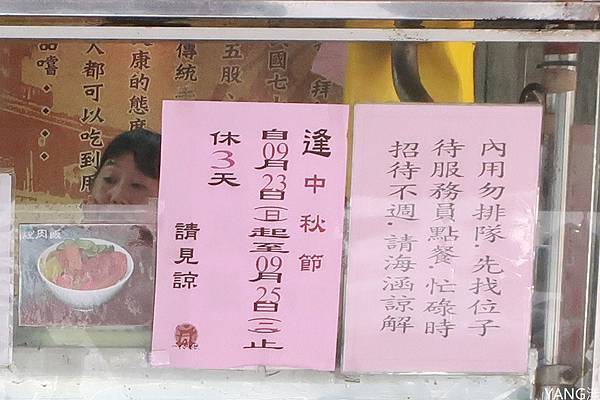 逢中秋節
自09月23日(日)起至09月25日(二)止
休3天
請見諒
內用勿排隊‧先找位子
待服務員點餐‧忙碌時
招待不週‧請海涵諒解
國七十
五股
傳統
康的態度
人都可以吃到
品嚐‧‧‧‧
肉飯
YANG